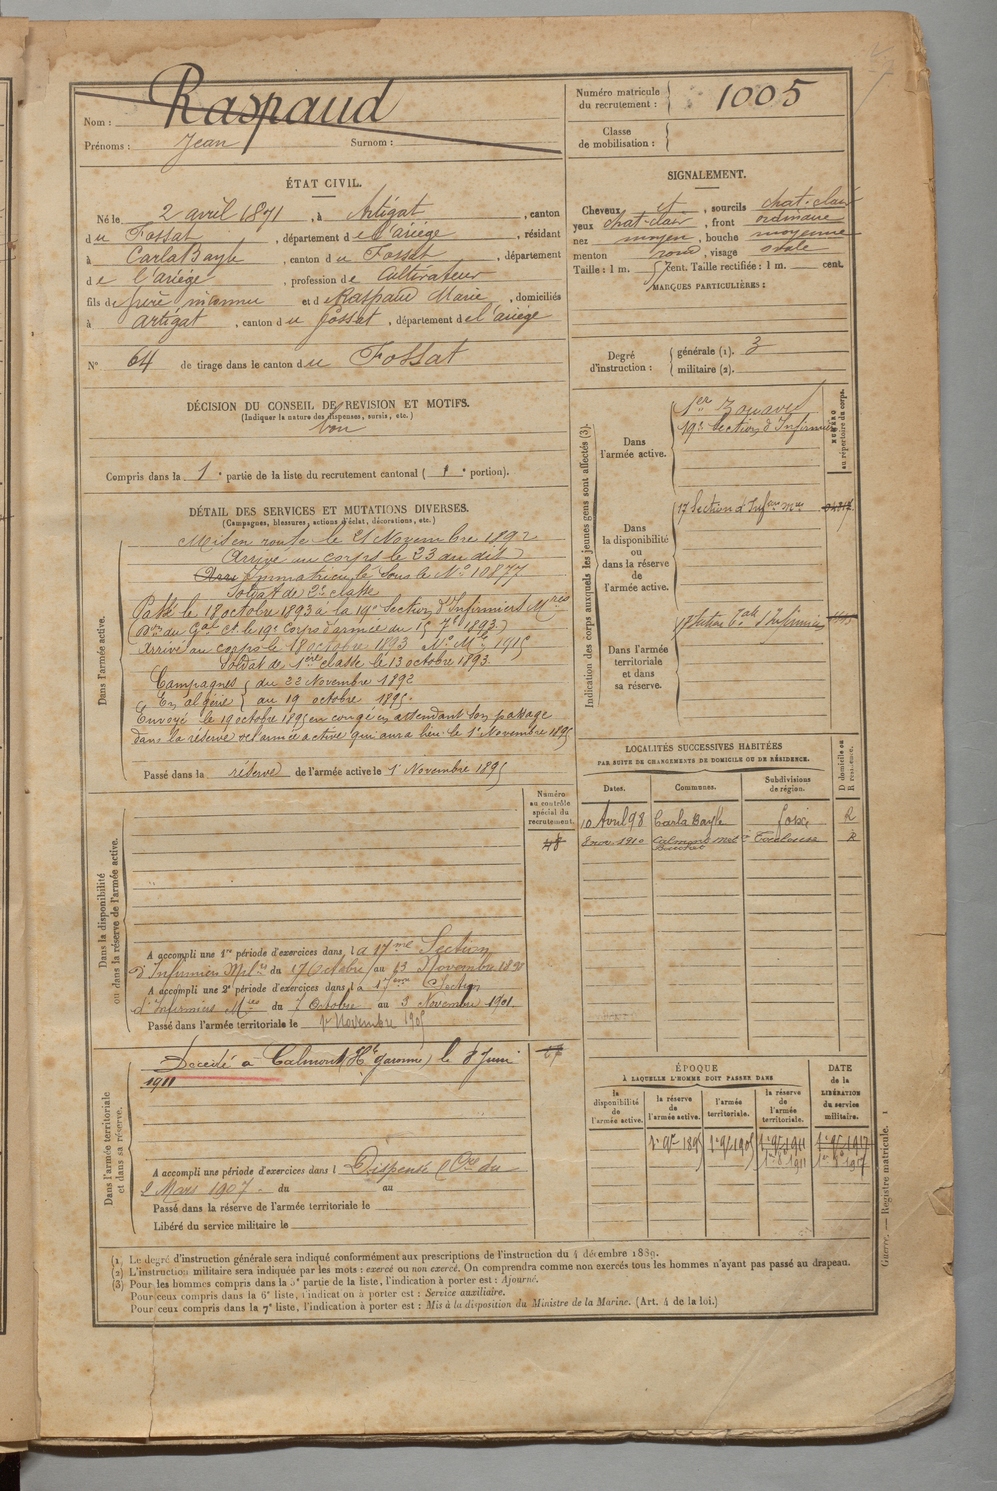 Nom : Raspaud
Prénoms : Jean Surnom :
Numéro matricule du recrutement : 1005
Classe de mobilisation :
ÉTAT CIVIL.
Né le 2 avril 1871, à Artigat, canton
du Fossat, département de l'ariège, résidant
à Carla Bayle, canton du Fossat, département
de l'ariége, profession de Cultivateur
fils de père inconnu et de Raspaud Marie, domiciliés
à Artigat, canton du fossat, département de l'ariége
N° 64 de tirage dans le canton du Fossat
SIGNALEMENT.
Cheveux et, sourcils chat-clair
yeux chat-clair, front ordinaire
nez moyen, bouche moyenne
menton rond, visage ovale
Taille : 1 m. 57 cent. Taille rectifiée : 1 m. cent.
MARQUES PARTICULIÈRES :
Degré d'instruction : générale (1). 3
militaire (2).
DÉCISION DU CONSEIL DE REVISION ET MOTIFS.
(Indiquer la nature des dispenses, sursis, etc.)
bon
Compris dans la 1e partie de la liste du recrutement cantonal ( 1e portion).
DÉTAIL DES SERVICES ET MUTATIONS DIVERSES.
(Campagnes, blessures, actions d'éclat, décorations, etc.)
Dans l'armée active.
Mis en route le 21 Novembre 1892
Arrivé au corps le 23 du dit
Arri Immatriculé sous le N° 10877
Soldat de 2e classe
Passé le 18 octobre 1893 à la 19e Section d'Infirmiers Mres
(Don du Gal Ct le 19e Corps d'armée du 15 7e 1893)
Arrivé au corps le 18 octobre 1893 N° Mle 1915
Soldat de 1ère classe le 13 octobre 1893
Campagnes { du 22 Novembre 1892
En algérie { au 19 octobre 1895.
Envoyé le 19 octobre 1895 en congé en attendant son passage
dans la réserve de l'armée active qui aura lieu le 1e Novembre 1895
Passé dans la réserve de l'armée active le 1e Novembre 1895
Indication des corps auxquels les jeunes gens sont affectés (3).
NUMÉRO au répertoire du corps.
Dans l'armée active.
1er Zouaves
19e Section d'Infirmiers
Dans la disponibilité ou dans la réserve de l'armée active.
17 Section d'Infers Mres
Dans l'armée territoriale et dans sa réserve.
LOCALITÉS SUCCESSIVES HABITÉES
PAR SUITE DE CHANGEMENTS DE DOMICILE OU DE RÉSIDENCE.
D domicile ou R résidence.
Dates. Communes. Subdivisions de région.
10 Avril 98 Carla Bayle foix R
8 nov. 1910 Calmont Toulouse R
Dans la disponibilité ou dans la réserve de l'armée active.
Numéro au contrôle spécial du recrutement.
48
A accompli une 1re période d'exercices dans la 17me Section
d'Infirmiers Mlres du 17 Octobre au 13 Novembre 1898
A accompli une 2e période d'exercices dans la 17eme Section
d'Infirmiers Mres du 7 Octobre au 3 Novembre 1901
Passé dans l'armée territoriale le 1e Novembre 1905
Dans l'armée territoriale et dans sa réserve.
Décédé à Calmont (Hte Garonne) le 8 Juin
1911
A accompli une période d'exercices dans l Dispensé
2 Mars 1907 - du au
Passé dans la réserve de l'armée territoriale le
Libéré du service militaire le
ÉPOQUE
À LAQUELLE L'HOMME DOIT PASSER DANS
DATE de la LIBÉRATION du service militaire.
la disponibilité de l'armée active.
la réserve de l'armée active.
l'armée territoriale.
la réserve de l'armée territoriale.
1e 9e 1895 1e 9e 1905 1e 9e 1911 1e 9e 1917
Guerre. — Registre matricule. 1
(1) Le degré d'instruction générale sera indiqué conformément aux prescriptions de l'instruction du 4 décembre 1889.
(2) L'instruction militaire sera indiquée par les mots : exercé ou non exercé. On comprendra comme non exercés tous les hommes n'ayant pas passé au drapeau.
(3) Pour les hommes compris dans la 5e partie de la liste, l'indication à porter est : Ajourné.
Pour ceux compris dans la 6e liste, l'indication à porter est : Service auxiliaire.
Pour ceux compris dans la 7e liste, l'indication à porter est : Mis à la disposition du Ministre de la Marine. (Art. 4 de la loi.)